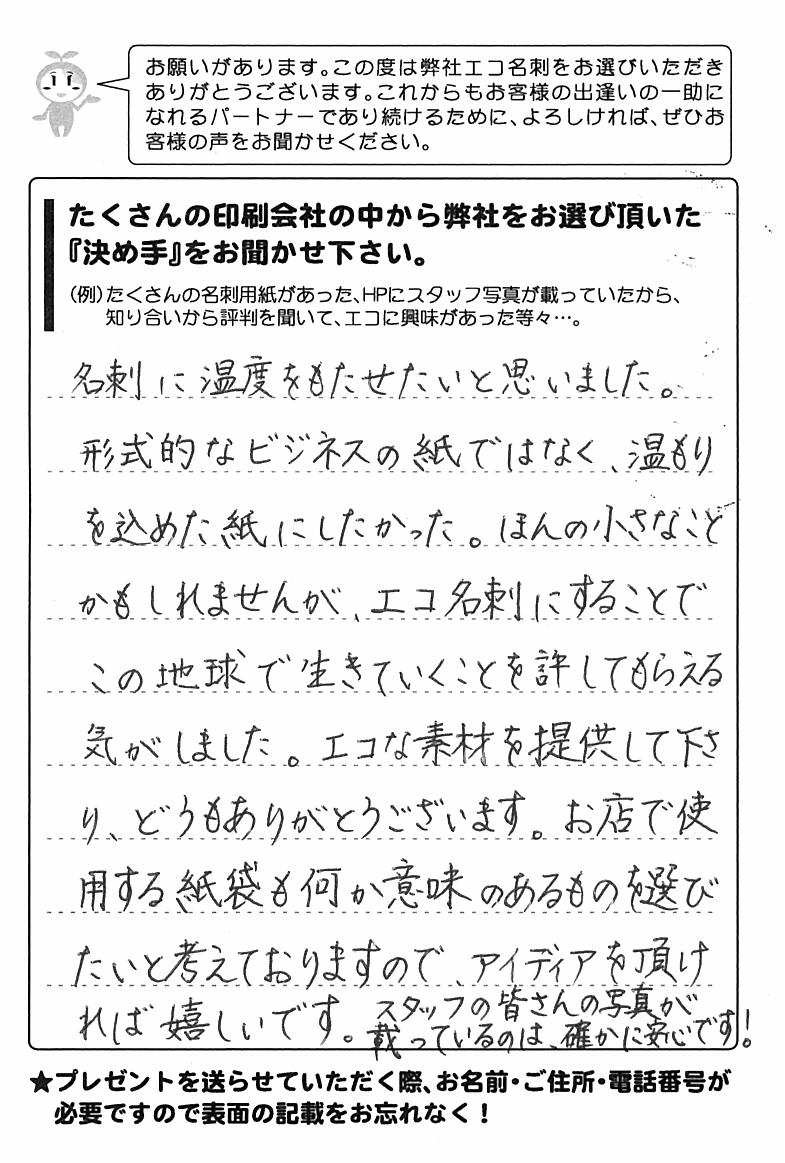 お願いがあります。この度は弊社エコ名刺をお選びいただき
ありがとうございます。これからもお客様の出逢いの一助に
なれるパートナーであり続けるために、よろしければ、ぜひお
客様の声をお聞かせください。
たくさんの印刷会社の中から弊社をお選び頂いた
『決め手』をお聞かせ下さい。
（例）たくさんの名刺用紙があった、HPにスタッフ写真が載っていたから、
知り合いから評判を聞いて、エコに興味があった等々…。
名刺に温度をもたせたいと思いました。
形式的なビジネスの紙ではなく、温もり
を込めた紙にしたかった。ほんの小さなこと
かもしれませんが、エコ名刺にすることで
この地球で生きていくことを許してもらえる
気がしました。エコな素材を提供して下さ
り、どうもありがとうございます。お店で使
用する紙袋も何か意味のあるものを選び
たいと考えておりますので、アイディアを頂け
れば嬉しいです。スタッフの皆さんの写真が
載っているのは、確かに安心です！
★プレゼントを送らせていただく際、お名前・ご住所・電話番号が
必要ですので表面の記載をお忘れなく！